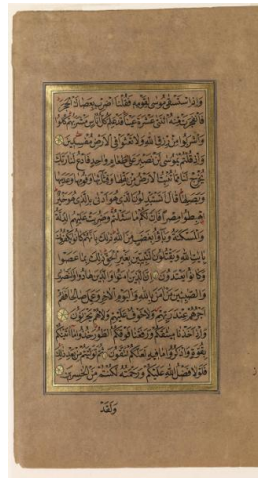 وَإِذِ اسْتَسْقَىٰ مُوسَىٰ لِقَوْمِهِ فَقُلْنَا اضْرِب بِعَصَاكَ الْحَجَرَ
فَانفَجَرَتْ مِنْهُ اثْنَتَا عَشْرَةَ عَيْنًا قَدْ عَلِمَ كُلُّ أُنَاسٍ مَّشْرَبَهُمْ كُلُوا
وَاشْرَبُوا مِن رِّزْقِ اللَّهِ وَلَا تَعْثَوْا فِي الْأَرْضِ مُفْسِدِينَ
وَإِذْ قُلْتُمْ يَا مُوسَىٰ لَن نَّصْبِرَ عَلَىٰ طَعَامٍ وَاحِدٍ فَادْعُ لَنَا رَبَّكَ
يُخْرِجْ لَنَا مِمَّا تُنبِتُ الْأَرْضُ مِن بَقْلِهَا وَقِثَّائِهَا وَفُومِهَا وَعَدَسِهَا
وَبَصَلِهَا قَالَ أَتَسْتَبْدِلُونَ الَّذِي هُوَ أَدْنَىٰ بِالَّذِي هُوَ خَيْرٌ
اهْبِطُوا مِصْرًا فَإِنَّ لَكُم مَّا سَأَلْتُمْ وَضُرِبَتْ عَلَيْهِمُ الذِّلَّةُ
وَالْمَسْكَنَةُ وَبَاءُوا بِغَضَبٍ مِّنَ اللَّهِ ذَٰلِكَ بِأَنَّهُمْ كَانُوا يَكْفُرُونَ
بِآيَاتِ اللَّهِ وَيَقْتُلُونَ النَّبِيِّينَ بِغَيْرِ الْحَقِّ ذَٰلِكَ بِمَا عَصَوا
وَّكَانُوا يَعْتَدُونَ إِنَّ الَّذِينَ آمَنُوا وَالَّذِينَ هَادُوا وَالنَّصَارَىٰ
وَالصَّابِئِينَ مَنْ آمَنَ بِاللَّهِ وَالْيَوْمِ الْآخِرِ وَعَمِلَ صَالِحًا فَلَهُمْ
أَجْرُهُمْ عِندَ رَبِّهِمْ وَلَا خَوْفٌ عَلَيْهِمْ وَلَا هُمْ يَحْزَنُونَ
وَإِذْ أَخَذْنَا مِيثَاقَكُمْ وَرَفَعْنَا فَوْقَكُمُ الطُّورَ خُذُوا مَا آتَيْنَاكُم
بِقُوَّةٍ وَاذْكُرُوا مَا فِيهِ لَعَلَّكُمْ تَتَّقُونَ ثُمَّ تَوَلَّيْتُم مِّن بَعْدِ ذَٰلِكَ
فَلَوْلَا فَضْلُ اللَّهِ عَلَيْكُمْ وَرَحْمَتُهُ لَكُنتُم مِّنَ الْخَاسِرِينَ
وَلَقَدْ